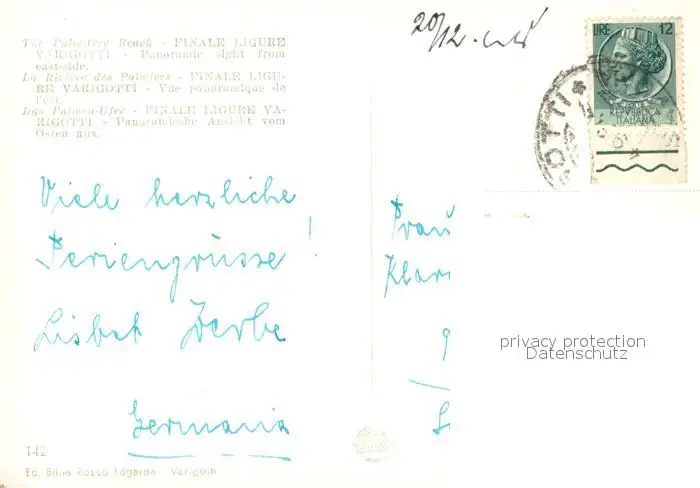 The Palm-tree Beach - FINALE LIGURE
VARIGOTTI - Panoramic sight from
east-side.
La Rivière des Palmiers - FINALE LIGU-
RE VARIGOTTI - Vue panoramique de
l'est.
Das Palmen-Ufer - FINALE LIGURE VA-
RIGOTTI - Panoramische Ansicht vom
Osten aus.
20/12.
LIRE 12
REPVBBLICA
ITALIANA
Viele herzliche
Feriengrüsse!
Lisbet
Germania
Frau
Klar
9
privacy protection
Datenschutz
142
Ed. Brino Rosso Fagarda - Varigotti